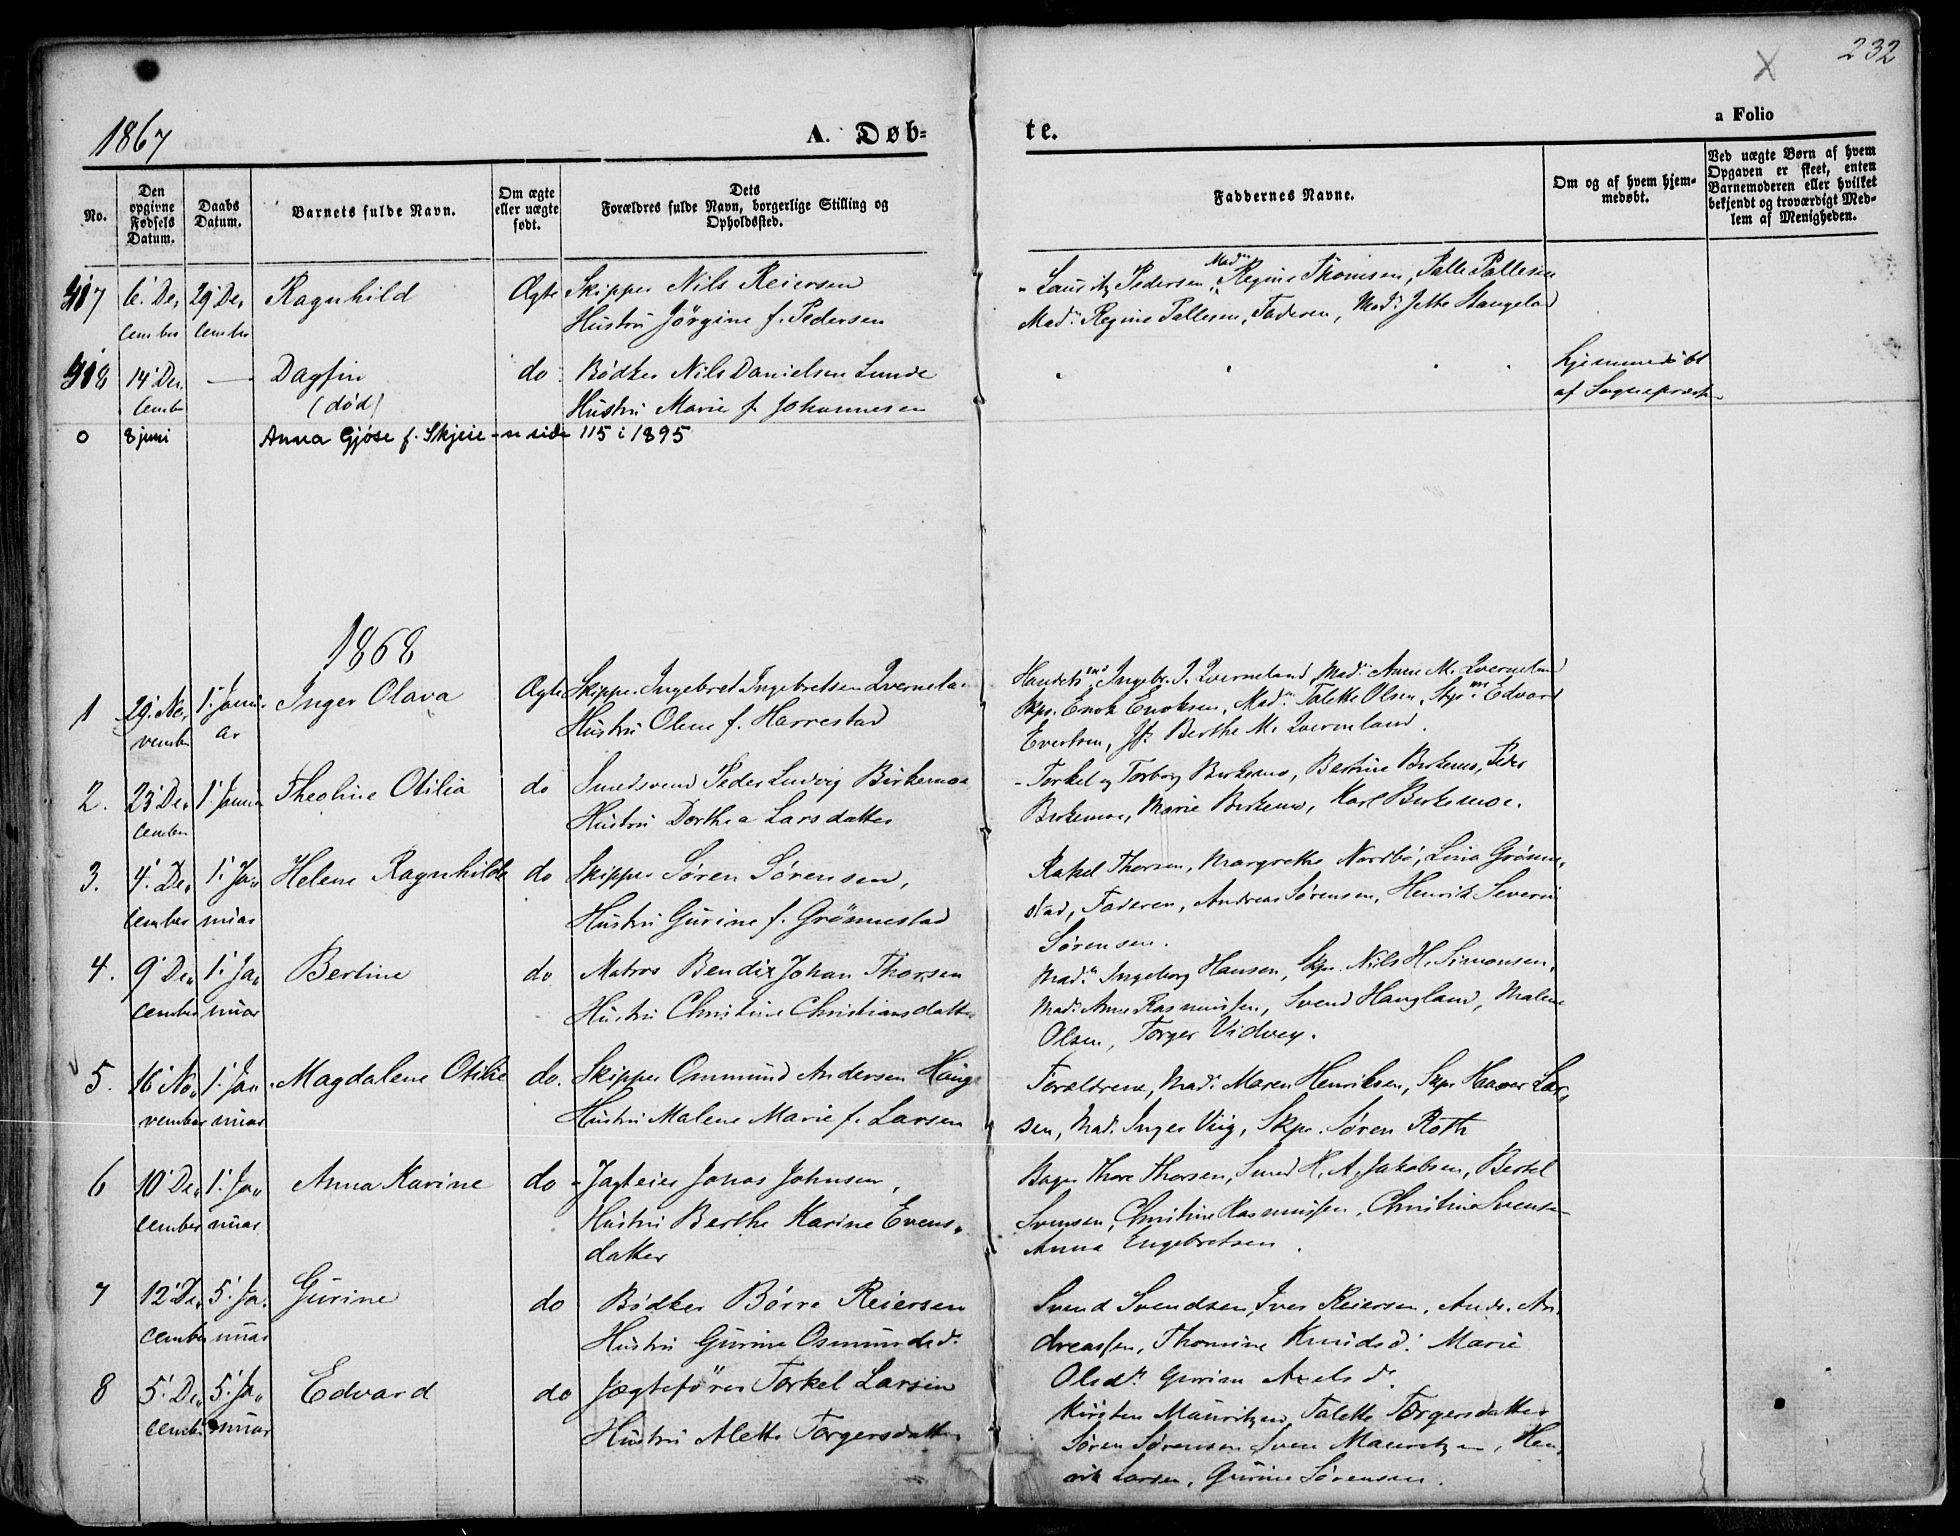 232
X
1867
A. Døb=
te.
a Folio
No.
Den opgivne Fødsels Datum.
Daabs Datum.
Barnets fulde Navn.
Om ægte eller uægte født.
Dets Forældres fulde Navn, borgerlige Stilling og Opholdssted.
Faddernes Navne.
Om og af hvem hjem-
medøbt.
Ved uægte Børn af hvem
Opgaven er skeet, enten
Barnemoderen eller hvilket
bekjendt og troværdigt Med-
lem af Menigheden.
317 6' De, 29' De, Ragnhild Ægte Skipper Nils Reiersen
cember cember Hustru Jörgine f. Pedersen
Lauritz Pedersen, Madm Regine Thomsen, Palle Pallesen
Madm Regine Pallesen, Faderen, Madm Jette Stangeland
318 14' De, — Dagfin do Bödker Nils Danielsen Lunde
cember (död) Hustru Marie f. Johannesen
hjemmedöbt
af Sognepræst
0 8 juni Anna Gjöse f. Skjeie - se side 115 i 1895
1868
1 29. No, 1' Janu, Inger Olava Ægte Skipper Ingebret Ingebretsen Qvernela
vember ar Hustru Olene f. Harrestad
Ingebr. I. Qverneland, Madm Anne M. Qverneland
Skpr. Enok Enoksen, Madm Talette Olsen, Edvard
Evertsen, Jf. Berthe M. Qverneland.
2. 23' De, 1' Janua Theoline Otilia do Smedsvend Peder Ludvig Birkemoe
cember Hustru Dorthea Larsdatter
Torkel og Torborg Birkemo, Bertine Birkemo, Peder
Birkemoe, Marie Birkemo, Karl Birkemoe.
3. 4' De, 1' Ja, Helene Ragnhilde do Skipper Sören Sörensen,
cember nuar Hustru Gurine f. Grönnestad
Rakel Thorsen, Margrethe Nordbö, Lina Grönne,
stad, Faderen, Andreas Sörensen, Henrik Severin
Sörensen.
4. 9' De, 1' Ja, Bertine do Matros Bendix Johan Thorsen
cember nuar Hustru Christine Christiansdatter
Madm Ingeborg Hansen, Skpr. Nils H. Simonsen,
Madm Anne Rasmussen, Svend Haugland, Malene
Olsen, Torger Vidvey.
5. 16' No, 1' Ja, Magdalene Otilie do. Skipper Ommund Andersen Haug
vember nuar Hustru Malene Marie f. Larsen
Forældrene, Mad. Maren Henriksen, Skpr Haaver Lar,
sen, Mad. Inger Viig, Skpr. Sören Roth
6 10' De, 1' Ja, Anna Karine do Jagteier Jonas Johnsen,
cember nuar Hustru Berthe Karine Evens,
datter
Bager Thore Thorsen, Smed H. A. Jakobsen, Bertel
Svensen, Christine Rasmussen, Christine Svensen
Anna Engebretsen.
7 12' De, 5' Ja, Gurine do Bödker Börre Reiersen
cember nuar Hustru Gurine Osmundsd.
Svend Svendsen, Iver Reiersen, Andr. An,
dreassen, Thomine Knudsd. Marie
Olsdr. Gurine Axelsd.
8 5' De, 5' Ja, Edvard do Jægteförer Torkel Larsen
cemb. nuar Hustru Alette Torgersdatter
Kirsten Mauritzen, Talette Torgersdatter
Sören Sörensen, Sven Mauritzen, Hen,
rik Larsen, Gurine Sörensen.